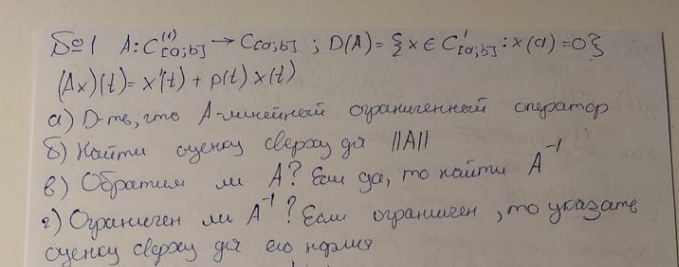 Б№1 A: C⁽¹⁾[a;b] → C[a;b] ; D(A) = {x ∈ C¹[a;b] : x(a) = 0}
(Ax)(t) = x'(t) + p(t) x(t)
а) D-ть, что A-линейный ограниченный оператор
б) Найти оценку сверху дя ||A||
в) Обратим ли A? Если да, то найти A⁻¹
г) Ограничен ли A⁻¹? Если ограничен, то указать
оценку сверху дя его нормы